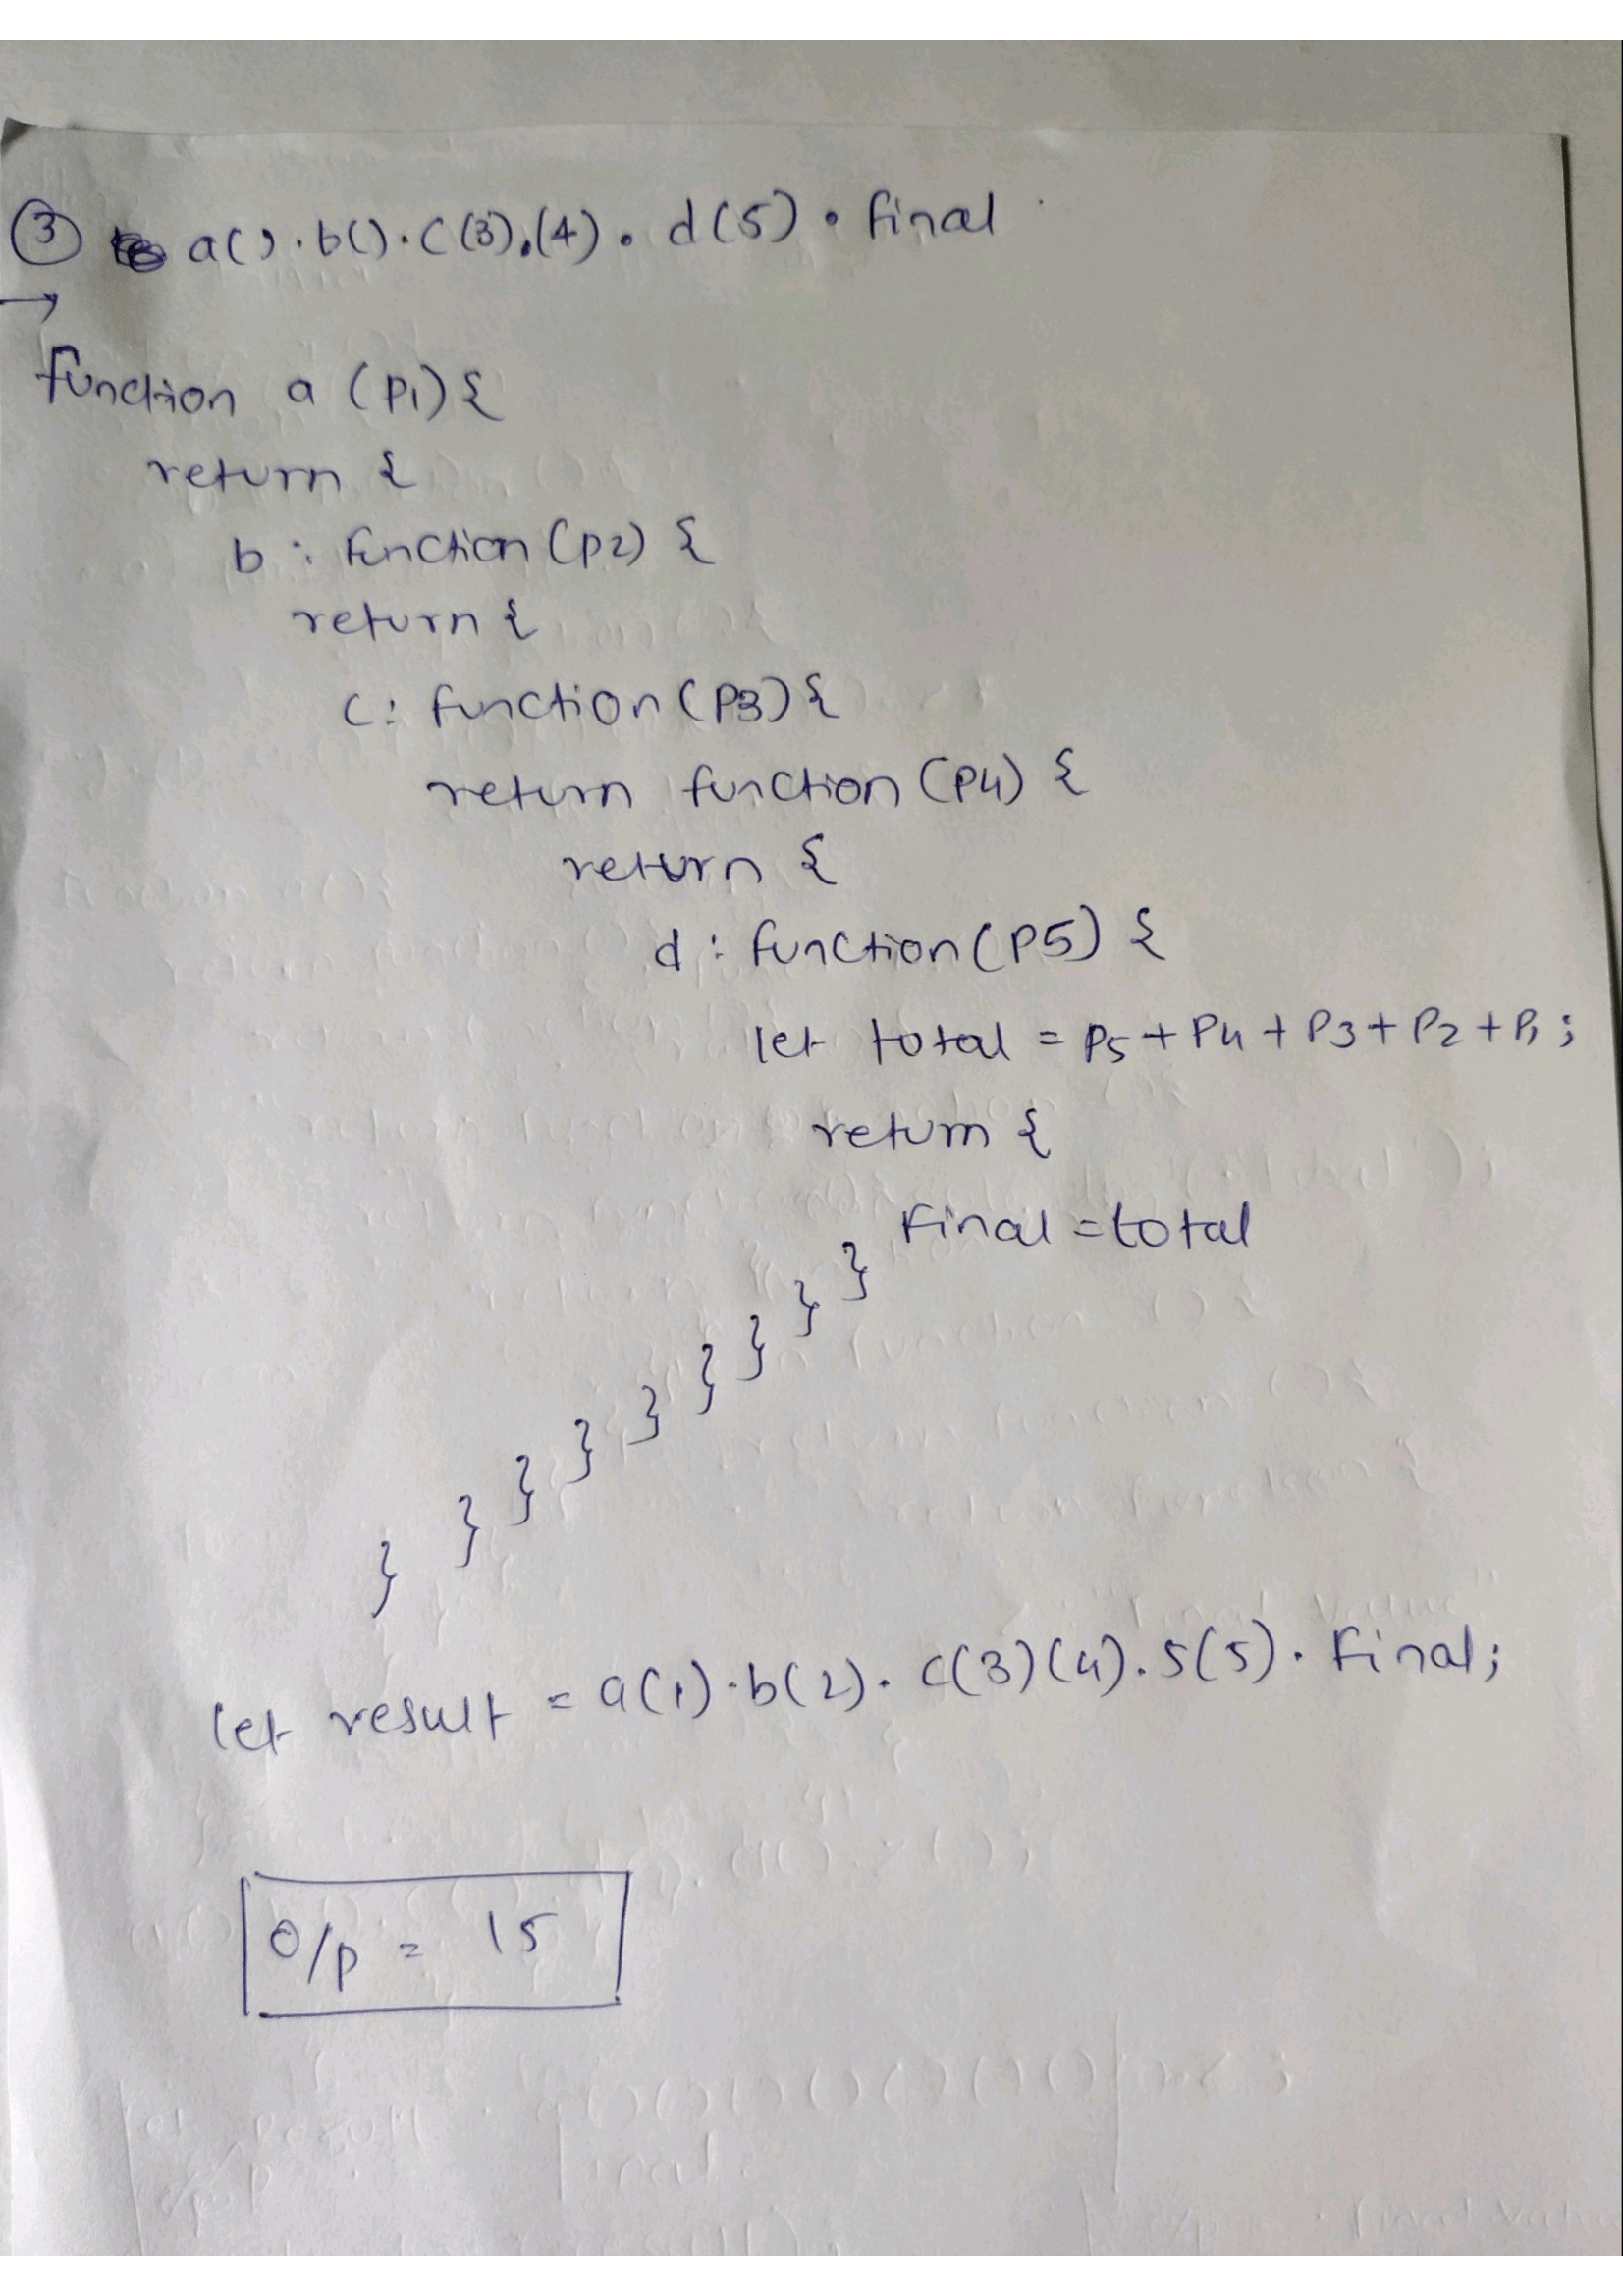 ③ a().b().c(3).(4).d(5).final
→
function a (p1) {
return {
b : function (p2) {
return {
c : function (p3) {
return function (p4) {
return {
d : function (p5) {
let total = p5 + p4 + p3 + p2 + p1 ;
return {
final = total
}
}
}
}
}
}
}
}
}
let result = a(1).b(2).c(3)(4).5(5).final;
O/p = 15